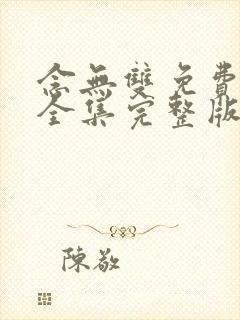 念無雙免費
全集完整版
陳敬